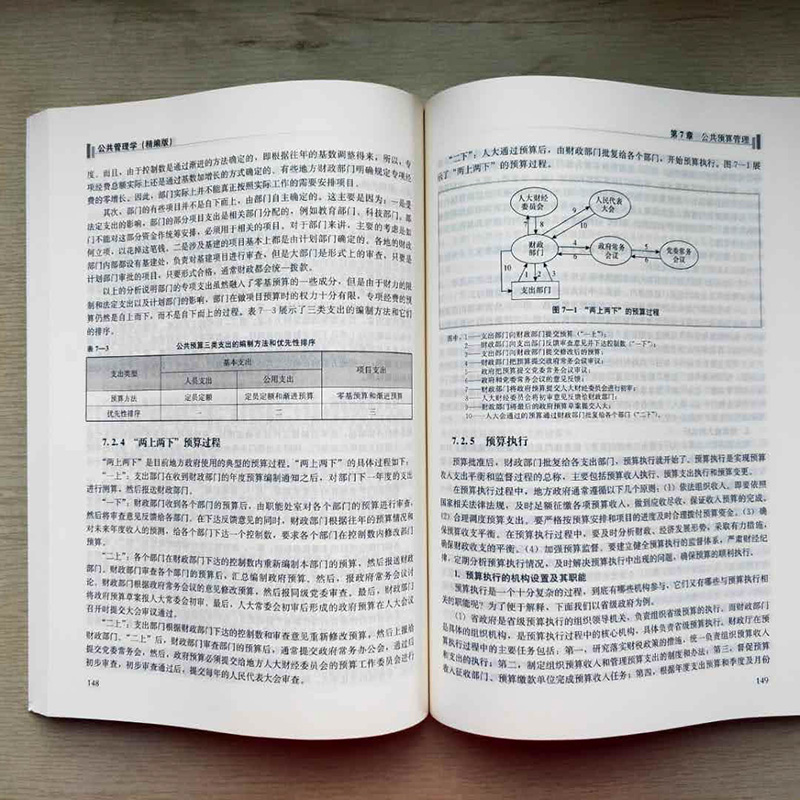 公共管理学(精编版)
度。而且，由于控制数是通过渐进的方法确定的，即根据往年的基数调整得来，所以，专
项经费总额实际上还是通过基数加增长的方式确定的。有些地方财政部门明确规定专项经
费的零增长。因此，部门实际上并不能真正按照实际工作的需要安排项目。
其次，部门的有些项目并不是自下而上、由部门自主确定的。这主要是因为：一是受
法定支出的影响，部门的部分项目支出是相关部门分配的，例如教育部门、科技部门，部
门不能对这部分资金作统筹安排，必须用于相关的项目。对于部门来讲，主要的考虑是如
何立项，以花掉这笔钱。二是涉及基建的项目基本上都是由计划部门确定的。各地的财政
部门内部都设有基建处，负责对基建项目进行审查，但是大部门是形式上的审查，只要是
计划部门审批的项目，只要形式合格，通常财政都会统一拨款。
以上的分析说明部门的专项支出虽然融入了零基预算的一些成分，但是由于财力的限
制和法定支出以及计划部门的影响，部门在做项目预算时的权力十分有限，专项经费的预
算仍然是自上而下，而不是自下而上的过程。表7—3展示了三类支出的编制方法和它们
的排序。
表7—3 公共预算三类支出的编制方法和优先性排序
支出类型 基本支出 项目支出
人员支出 公用支出
预算方法 定员定额 定员定额和渐进预算 零基预算和渐进预算
优先性排序 一 二 三
7.2.4 “两上两下”预算过程
“两上两下”是目前地方政府使用的典型的预算过程。“两上两下”的具体过程如下：
“一上”：支出部门在收到财政部门的年度预算编制通知之后，对部门下一年度的支出
进行测算，然后报送财政部门。
“一下”：财政部门收到各个部门的预算后，由职能处室对各个部门的预算进行审查，
然后将审查意见反馈给各部门。在下达反馈意见的同时，财政部门根据往年的预算情况和
对未来年度收入的预测，给各个部门下达一个控制数，要求各个部门在控制数内修改部门
预算。
“二上”：各个部门在财政部门下达的控制数内重新编制本部门的预算，然后报送财政
部门。财政部门审查各个部门的预算后，汇总编制政府预算。然后，报政府常务会议讨
论。财政部门根据政府常务会议的意见修改预算，然后报同级党委审查。最后，财政部门
将政府预算草案报人大常委会初审。最后，人大常委会初审后形成的政府预算在人大会议
召开时提交大会审议通过。
“二上”：支出部门根据财政部门下达的控制数和审查意见重新修改预算，然后上报给
财政部门。“二上”后，财政部门审查部门的预算后，通常提交政府常务办公会，通过后
提交党委常务会，然后，政府预算必须提交给地方人大财经委员会的预算工作委员会进行
初步审查，初步审查通过后，提交每年的人民代表大会审查。
148
第7章 公共预算管理
“二下”：人大通过预算后，由财政部门批复给各个部门，开始预算执行。图7—1展
示了“两上两下”的预算过程。
人大财经
委员会
人民代表
大会
7
8
9
10
财政
部门
4
6
政府常务
会议
5
6
党委常务
会议
10
1
2
3
支出部门
图7—1 “两上两下”的预算过程
图中：1——支出部门向财政部门提交预算（“一上”）；
2——财政部门向支出部门反馈审查意见并下达控制数（“一下”）；
3——支出部门向财政部门提交修改后的预算；
4——财政部门把预算提交政府常务会议审议；
5——政府把预算提交党委常务会议审议；
6——政府和党委常务会议的意见反馈；
7——财政部门将政府预算提交人大财经委员会进行初审；
8——人大财经委员会将初审意见反馈给财政部门；
9——财政部门将最后的政府预算草案提交人大；
10——人大会通过的预算通过财政部门批复给各个部门（“二下”）。
7.2.5 预算执行
预算批准后，财政部门批复给各支出部门，预算执行就开始了。预算执行是实现预算
收入支出平衡和监督过程的总称，主要包括预算收入执行、预算支出执行和预算变更。
在预算执行过程中，地方政府通常遵循以下几个原则：（1）依法组织收入。即要依照
国家相关法律法规，及时足额征缴各项预算收入，做到应收尽收，保证收入预算的完成。
（2）合理调度预算支出。要严格按预算安排和项目的进度及时合理拨付预算资金。（3）确
保预算收支平衡。在预算执行过程中，要及时分析财政、经济发展形势，采取有力措施，
确保财政收支的平衡。（4）加强预算监督。要建立健全预算执行的监督体系，严肃财经纪
律，定期分析预算执行情况，及时解决预算执行中出现的问题，确保预算的顺利执行。
1. 预算执行的机构设置及其职能
预算执行是一个十分复杂的过程，到底有哪些机构参与，它们又有哪些与预算执行相
关的职能呢？为了便于了解，下面我们以省级政府为例。
（1）省政府是省级预算执行的组织领导机关，负责组织省级预算的执行。而财政部门
是具体的组织机构，是预算执行过程中的核心机构，具体负责省级预算执行。财政厅在预
算执行过程中的主要任务包括：第一，研究落实财税政策的措施，统一负责组织预算收入
和支出的执行；第二，制定组织预算收入和管理预算支出的制度和办法；第三，督促预算
收入征收部门、预算缴款单位完成预算收入任务；第四，根据年度支出预算和季度及月份
149